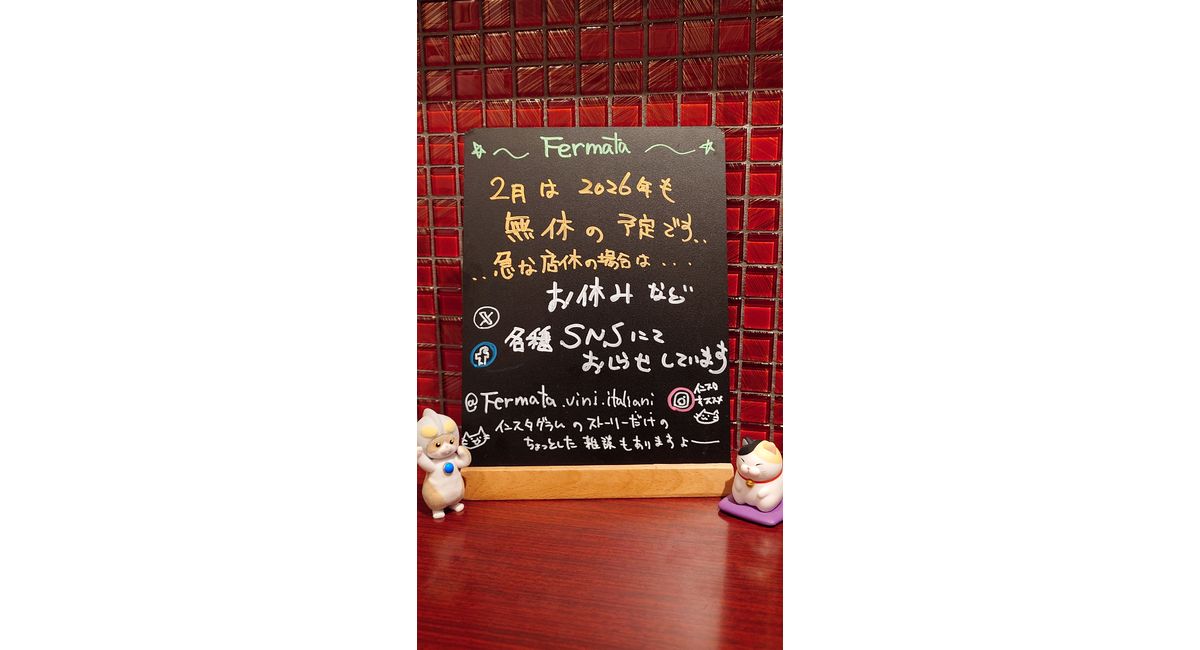 Fermata
2月は 2026年も
無休の予定です..
..急な店休の場合は...
お休みなど
各種SNSにて
おしらせしています
@Fermata.vini.italiani
インスタ
オススメ
インスタグラムのストーリーだけの
ちょっとした雑談もありますよー